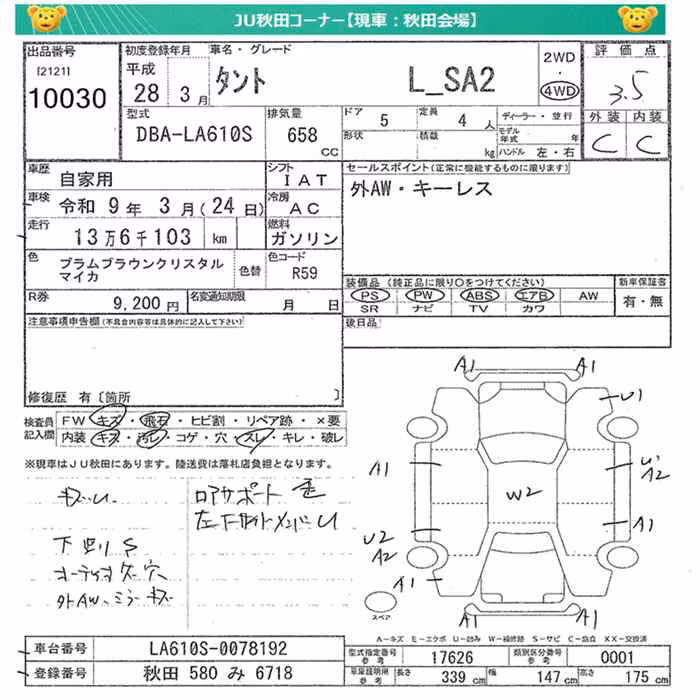 JU秋田コーナー【現車：秋田会場】
出品番号
[2121]
10030
初度登録年月
平成
28 3月
車名・グレード
タント L_SA2
2WD
・
4WD
評価点
3.5
外装 内装
C C
型式
DBA-LA610S
排気量
658 CC
ドア 5
形状
定員 4 人
積載 kg
ディーラー・並行
モデル年式 年
ハンドル 左・右
車歴 自家用
シフト IAT
車検 令和 9年 3月(24日)
冷房 AC
走行 13万6千103 km
燃料 ガソリン
色 プラムブラウンクリスタルマイカ
色替
色コード R59
R券 9,200円
名変通知期限 月 日
セールスポイント(正常に機能するものに限ります)
外AW・キーレス
装備品 (純正品に限り○をつけてください)
PS PW ABS エアB AW
SR ナビ TV カワ
新車保証書
有・無
後日品
注意事項申告欄(不具合内容等は具体的に記入して下さい)
修復歴 有〔箇所 〕
検査員記入欄
FW キズ・飛石・ヒビ割・リペア跡・×要
内装 キズ・汚レ・コゲ・穴・スレ・キレ・破レ
※現車はJU秋田にあります。陸送費は落札店負担となります。
ロアサポート
下廻りS
オーディオ穴
外AW、ミラーキズ
A1 A1
A1 U1
A1 U1 A2
W2
U2 A2 A1
A1
A1 A1
スペア
A-キズ E-エクボ U-凹み W-補修跡 S-サビ C-腐食 XX-交換済
車台番号 LA610S-0078192
登録番号 秋田 580 み 6718
型式指定番号 参考 17626
類別区分番号 参考 0001
車庫証明用 参考 長さ 339 cm 幅 147 cm 高さ 175 cm